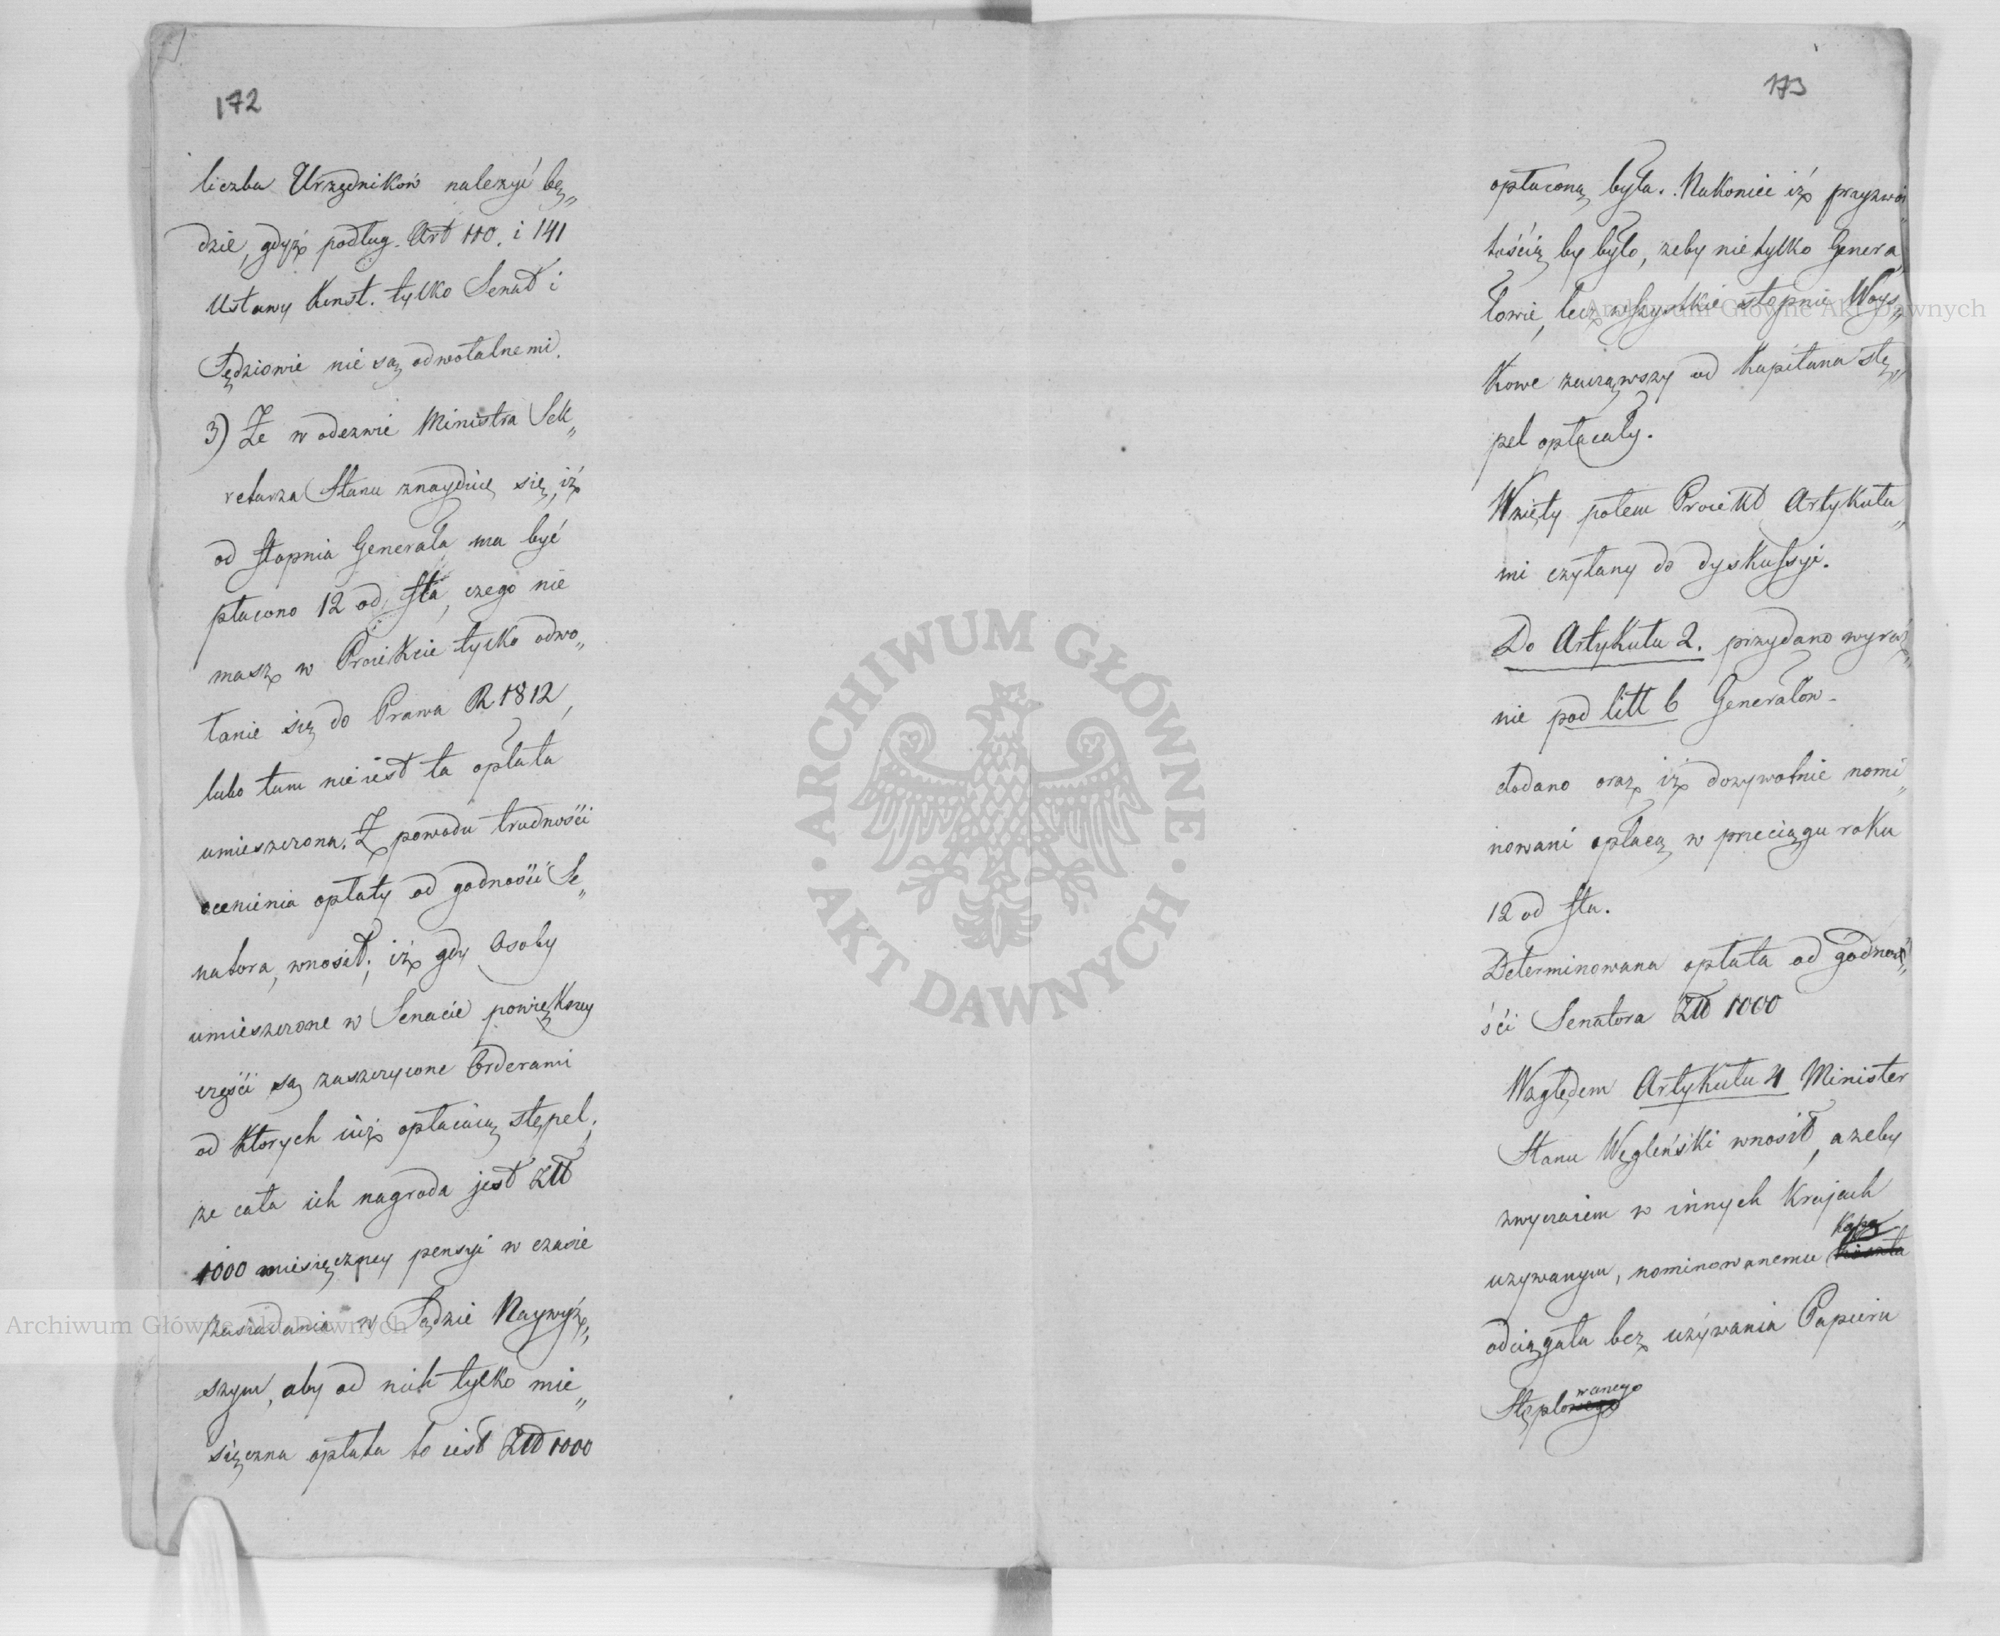 172
liczba Urzędników należyć bę„
dzie, gdyż podług Art 110. i 141
Ustawy Konst. tylko Senat i
Sędziowie nie są odwołalnemi.
3) Że w odezwie Ministra Sek„
retarza Stanu znayduie się, iż
od stopnia Generała ma być
płacono 12 od sta, czego nie
masz w Proiekcie tylko odwo„
łanie się do Prawa R 1812,
lubo tam nie iest ta opłata
umieszczona. Z powodu trudności
ocenienia opłaty od godności Se„
natora, wnosił; iż gdy Osoby
umieszczone w Senacie powiększey
części są zaszczycone Orderami
od których iuż opłacaią stępel,
że cała ich nagroda jest Złł
1000 miesięczney pensyi w czasie
zasiadania w Sądzie Naywyż„
szym, aby od nich tylko mie„
sięczna opłata to iest Złł 1000
173
opłaconą była. Nakoniec iż przyzwoi„
tością by było, żeby nietylko Genera„
łowie, lecz wszystkie stopnie Woys„
kowe zacząwszy od Kapitana stę„
pel opłacały.
Wzięty potem Proiekt Artykuła„
mi czytany do dyskussyi.
Do Artykułu 2. przydano wyraź„
nie pod litt b Generałow.
dodano oraz iż dożywotnie nomi„
nowani opłacą w przeciągu roku
12 od sta.
Determinowana opłata od godnoś„
ści Senatora Złł 1000
Względem Artykułu 4 Minister
Stanu Węgleński wnosił, ażeby
zwyczaiem w innych Krajach
używanym, nominowanemu Kassa
odciągała bez używania Papieru
Stęplowanego
Archiwum Główne Akt Dawnych
Archiwum Główne Akt Dawnych
ARCHIWUM GŁÓWNE · AKT DAWNYCH ·